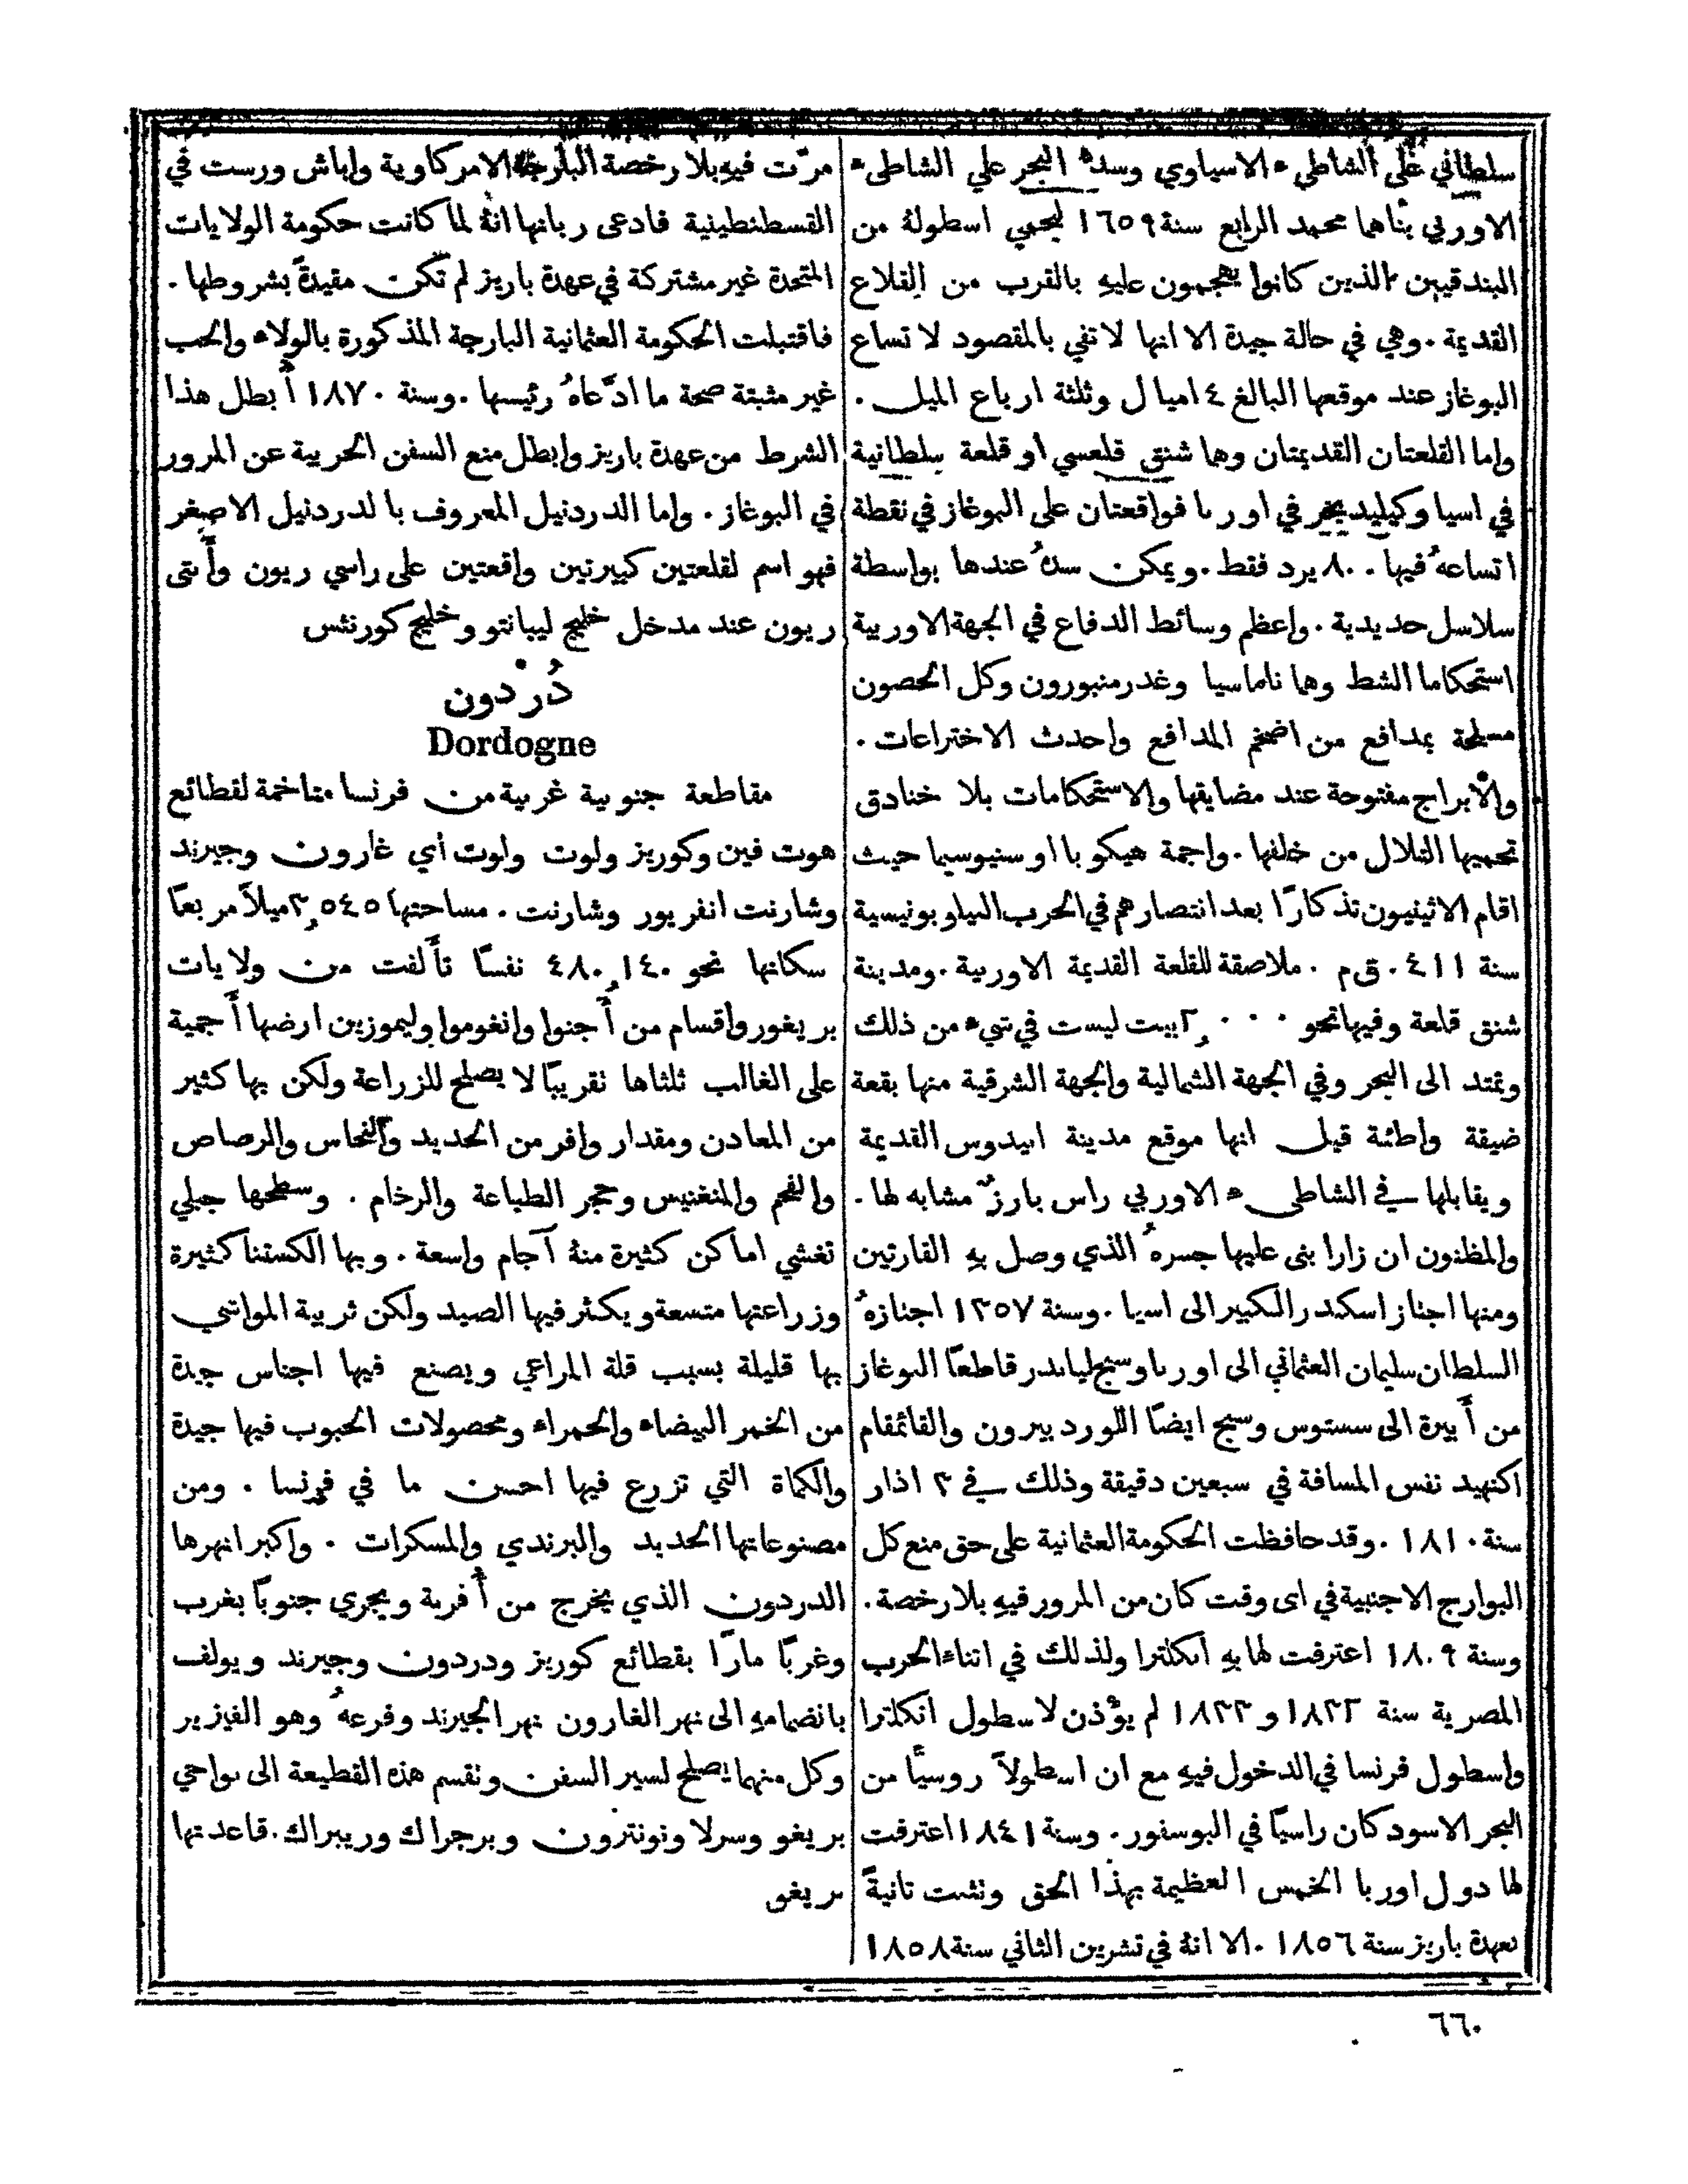 سلطاني على الشاطىء الاسياوي وسد البحر على الشاطىء
الاوربي بناهما محمد الرابع سنة ١٦٥٩ ليحمي اسطولهُ من
البندقيين الذين كانوا يهجمون عليهِ بالقرب من القلاع
القديمة. وهي في حالة جيدة الا انها لا تفي بالمقصود لاتساع
البوغاز عند موقعها البالغ ٤ اميال وثلثة ارباع الميل.
واما القلعتان القديمتان وهما شنق قلعسي او قلعة سلطانية
في اسيا وكيليد بحر في اوربا فواقعتان على البوغاز في نقطة
اتساعهُ فيها ٨٠٠ يرد فقط. ويمكن سدهُ عندها بواسطة
سلاسل حديدية. واعظم وسائط الدفاع في الجهة الاوربية
استحكاما الشط وهما ناماسيا وغدرمنبورون وكل الحصون
مسلحة بمدافع من اضخم المدافع واحدث الاختراعات.
والأبراج مفتوحة عند مضايقها والاستحكامات بلا خنادق
تحميها التلال من خلفها. واجمة هيكوبا او سنيوسيما حيث
اقام الاثينيون تذكارًا بعد انتصارهم في الحرب البيلوبونيسية
سنة ٤١١ ق م. ملاصقة للقلعة القديمة الاوربية. ومدينة
شنق قلعة وفيها نحو ٢٫٠٠٠ بيت ليست في شيء من ذلك
وتمتد الى البحر وفي الجهة الشمالية والجهة الشرقية منها بقعة
ضيقة واطئة قيل انها موقع مدينة ابيدوس القديمة
ويقابلها في الشاطىء الاوربي راس بارزٌ مشابه لها.
والمظنون ان زارا بنى عليها جسرهُ الذي وصل بهِ القارتين
ومنها اجتاز اسكندر الكبير الى اسيا. وسنة ١٣٥٧ اجتازهُ
السلطان سليمان العثماني الى اوربا وسبح لياندر قاطعًا البوغاز
من أبيرة الى سستوس وسبح ايضًا اللورد بيرون والقائمقام
اكنهيد نفس المسافة في سبعين دقيقة وذلك في ٣ اذار
سنة ١٨١٠. وقد حافظت الحكومة العثمانية على حق منع كل
البوارج الاجنبية في اى وقت كان من المرور فيهِ بلا رخصة.
وسنة ١٨٠٩ اعترفت لها بهِ انكلترا ولذلك في اثناء الحرب
المصرية سنة ١٨٣٢ و ١٨٣٣ لم يؤذن لاسطول انكلترا
واسطول فرنسا في الدخول فيهِ مع ان اسطولاً روسيًّا من
البحر الاسود كان راسيًا في البوسفور. وسنة ١٨٤١ اعترفت
لها دول اوربا الخمس العظيمة بهذا الحق وتثبت ثانيةً
بعهدة باريز سنة ١٨٥٦. الا انهُ في تشرين الثاني سنة ١٨٥٨
مرّت فيهِ بلا رخصة البارجة الامركاوية واباش ورست في
القسطنطينية فادعى ربانها انهُ لما كانت حكومة الولايات
المتحدة غير مشتركة في عهدة باريز لم تكن مقيدةً بشروطها.
فاقتبلت الحكومة العثمانية البارجة المذكورة بالولاء والحب
غير مثبتة صحة ما ادّعاهُ رئيسها. وسنة ١٨٧٠ أُبطل هذا
الشرط من عهدة باريز وابطل منع السفن الحربية عن المرور
في البوغاز. واما الدردنيل المعروف بالدردنيل الاصغر
فهو اسم لقلعتين كبيرتين واقعتين على راسي ريون وأنتي
ريون عند مدخل خليج ليبانتو وخليج كورنثس
دُرْدون
Dordogne
مقاطعة جنوبية غربية من فرنسا متاخمة لقطائع
هوت فين وكوريز ولوت ولوت اي غارون وجيرند
وشارنت انفريور وشارنت. مساحتها ٣٫٥٤٥ ميلاً مربعًا
سكانها نحو ٤٨٠٫١٤٠ نفسًا تألفت من ولايات
بريغور واقسام من أجنوا وانغوموا وليموزين ارضها أجمية
على الغالب ثلثاها تقريبًا لا يصلح للزراعة ولكن بها كثير
من المعادن ومقدار وافر من الحديد والنحاس والرصاص
والفحم والمنغنيس وحجر الطباعة والرخام. وسطحها جبلي
تغشي اماكن كثيرة منهُ آجام واسعة. وبها الكستنا كثيرة
وزراعتها متسعة ويكثر فيها الصيد ولكن تربية المواشي
بها قليلة بسبب قلة المراعي ويصنع فيها اجناس جيدة
من الخمر البيضاء والحمراء ومحصولات الحبوب فيها جيدة
والكماة التي تزرع فيها احسن ما في فرنسا. ومن
مصنوعاتها الحديد والبرندي والمسكرات. واكبر انهرها
الدردون الذي يخرج من أفرنة ويجري جنوبًا بغرب
وغربًا مارًّا بقطائع كوريز ودردون وجيرند ويولف
بانضمامهِ الى نهر الغارون نهر الجيرند وفرعهُ وهو الفيزير
وكل منهما يصلح لسير السفن وتقسم هذه القطيعة الى نواحي
بريغو وسرلا ونونترون وبرجراك وريبراك. قاعدتها
بريغو
٦٦٠